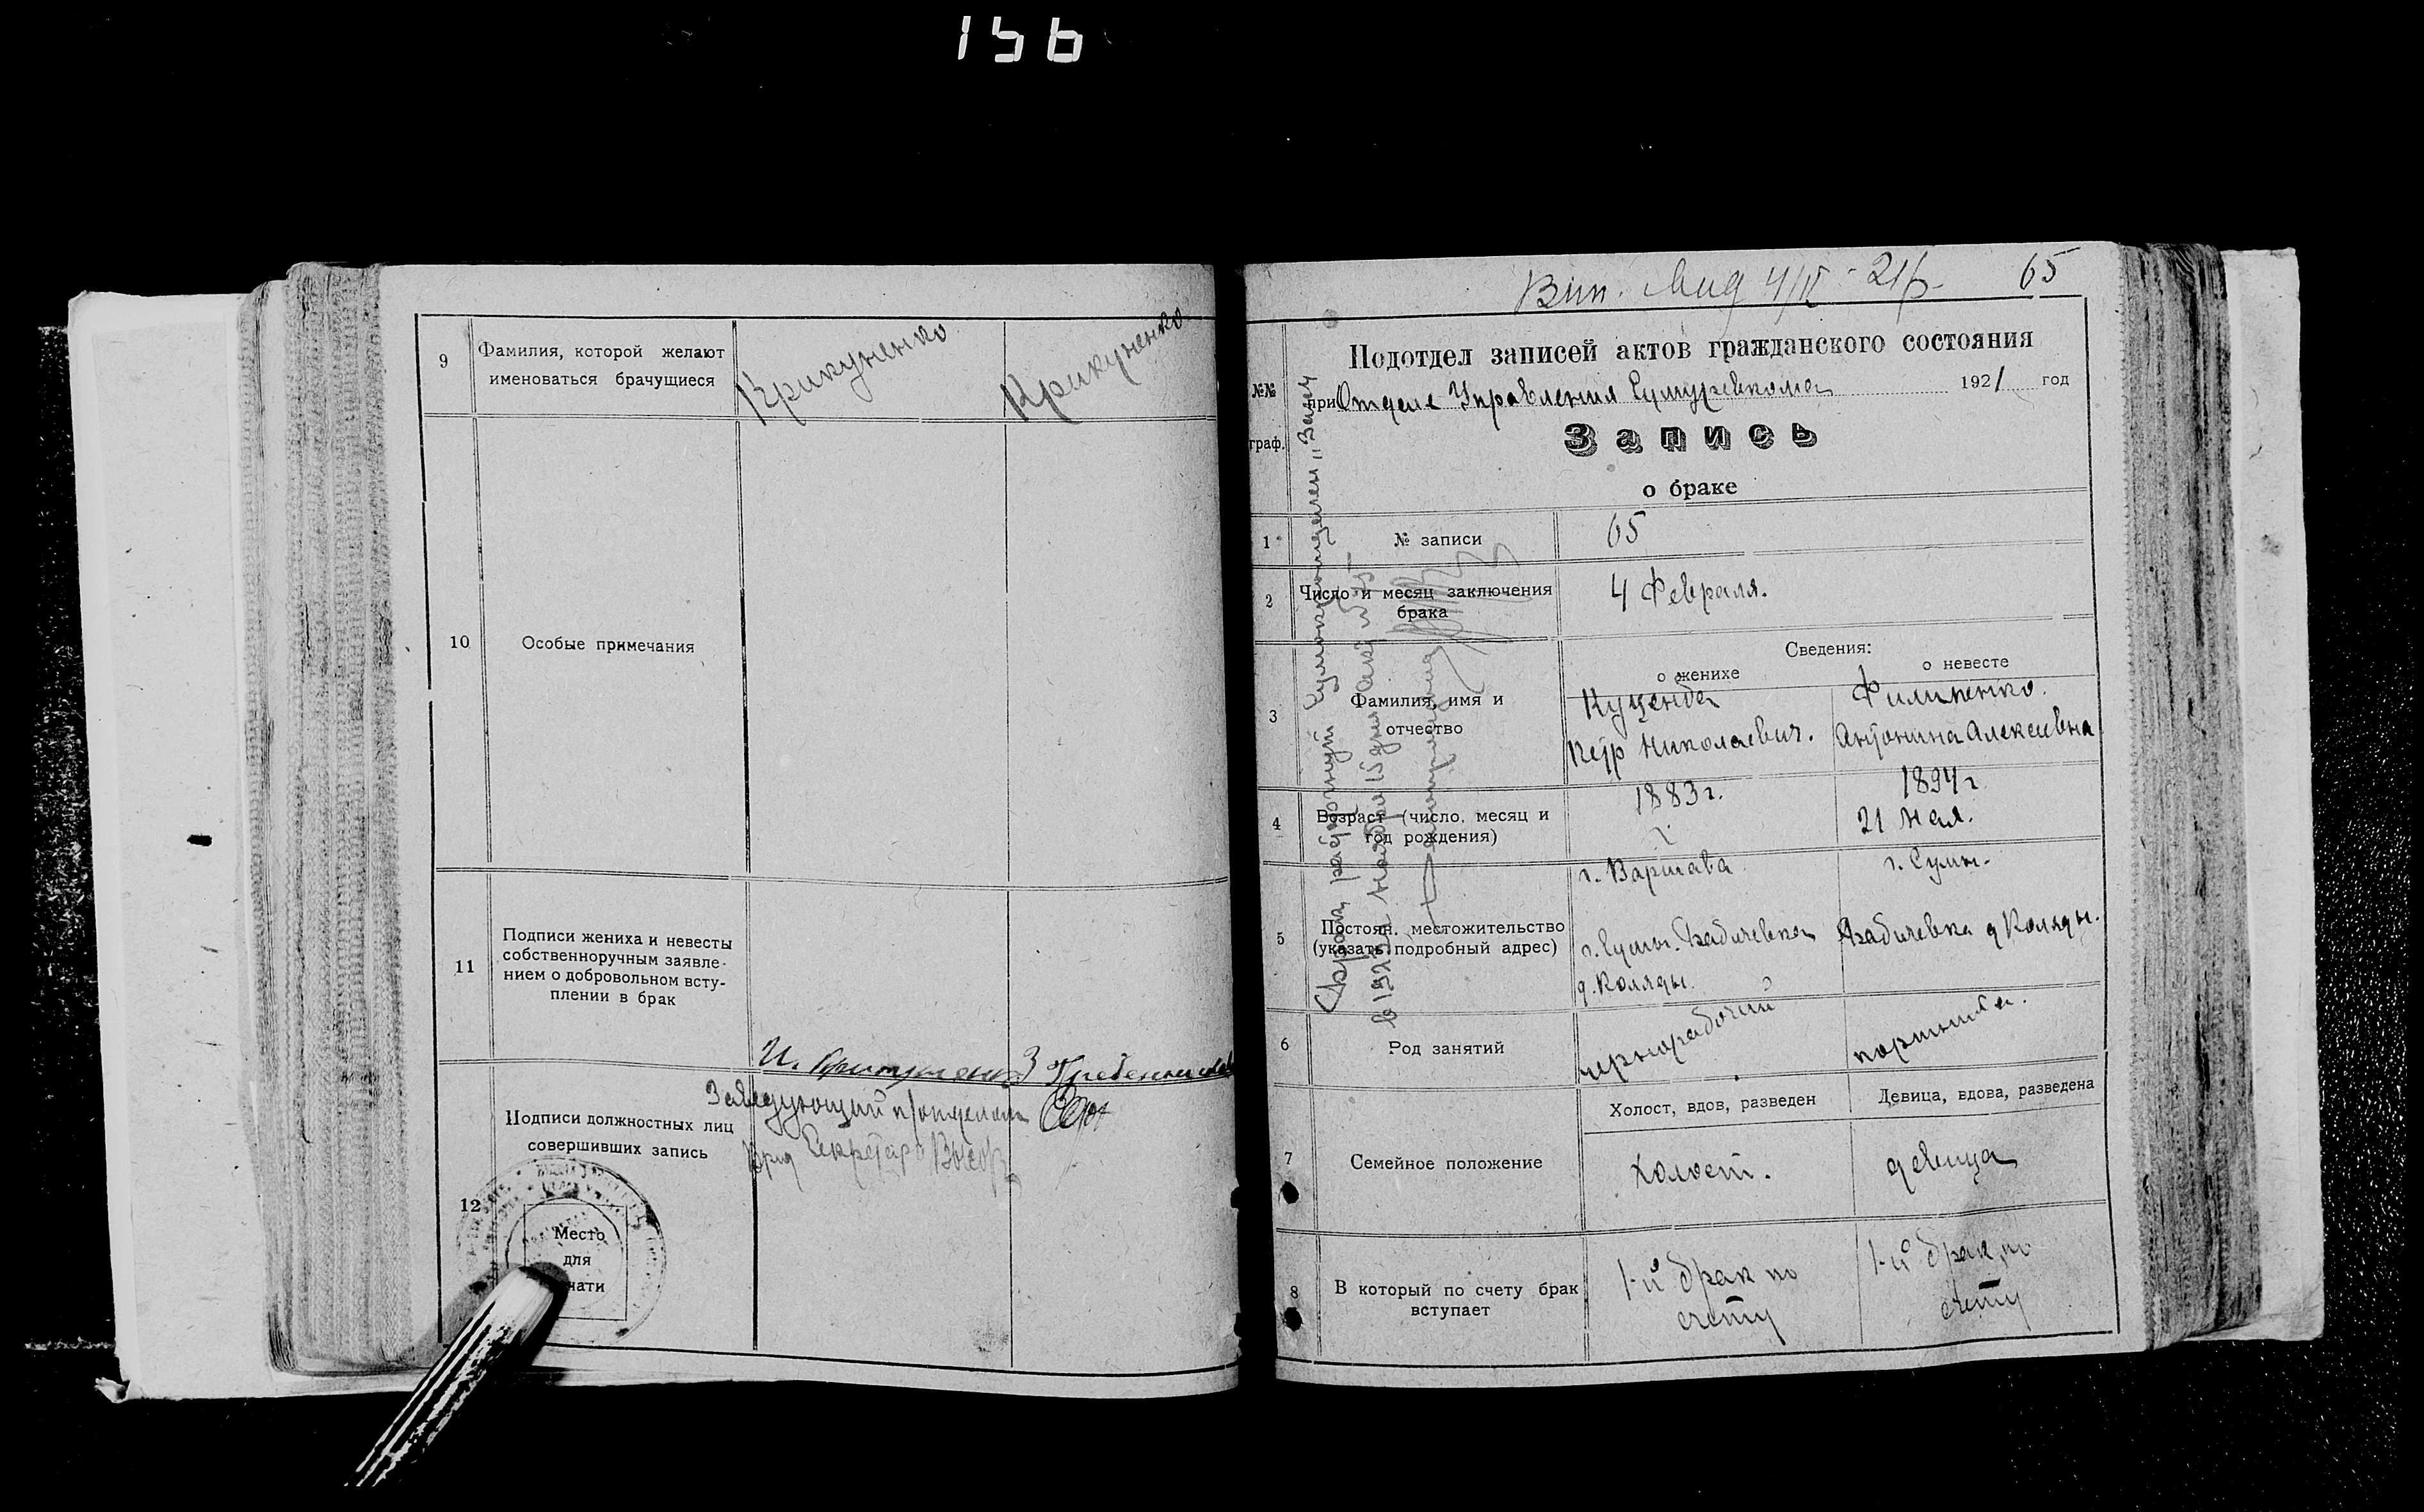 156
9
Фамилия, которой желают
именоваться брачущиеся
Крикуненко
Крикуненко
10
Особые примечания
11
Подписи жениха и невесты
собственноручным заявле-
нием о добровольном всту-
плении в брак
И. Крикуненко
З Гребенникова
12
Подписи должностных лиц
совершивших запись
Заведующий п/отделом
Врид Секретаря
Место
для
чати
Вип. 4/II 21р.
65
№№
граф.
Подотдел записей актов гражданского состояния
при Отделе Управления Сумуревкома 1921 год
Запись
о браке
1
№ записи
65
2
Число и месяц заключения
брака
4 Февраля.
Сведения:
о женихе
о невесте
3
Фамилия, имя и
отчество
Куценда
Петр Николаевич.
Филипенко.
Антонина Алексеевна
4
Возраст (число, месяц и
год рождения)
1883г.
1894г
21 Мая.
5
Постоян. местожительство
(указать подробный адрес)
г. Варшава
г. Сумы. д. Коляды.
г. Сумы.
д Коляды.
6
Род занятий
чернорабочий
портниха.
7
Семейное положение
Холост, вдов, разведен
Девица, вдова, разведена
холост.
девица
8
В который по счету брак
вступает
1-й брак по
счету
1-й брак по
счету